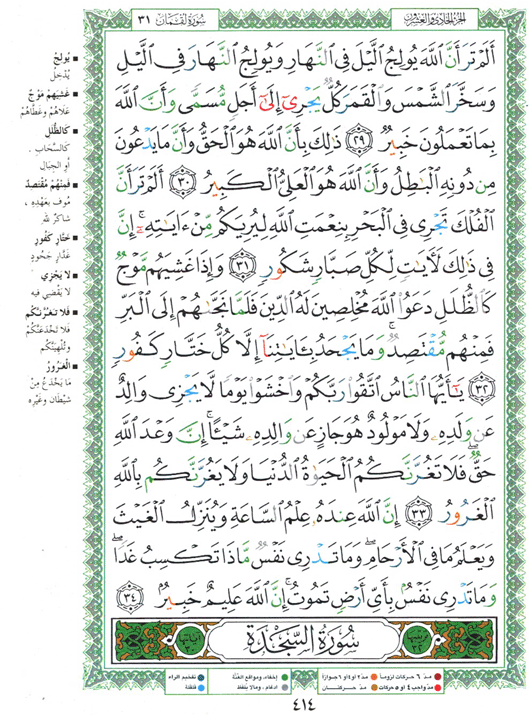 الجزء الحادي والعشرون
سورة لقمان ٣١
أَلَمْ تَرَ أَنَّ ٱللَّهَ يُولِجُ ٱلَّيْلَ فِى ٱلنَّهَارِ وَيُولِجُ ٱلنَّهَارَ فِى ٱلَّيْلِ
وَسَخَّرَ ٱلشَّمْسَ وَٱلْقَمَرَ كُلٌّ يَجْرِىٓ إِلَىٰٓ أَجَلٍ مُّسَمًّى وَأَنَّ ٱللَّهَ
بِمَا تَعْمَلُونَ خَبِيرٌ ٢٩ ذَٰلِكَ بِأَنَّ ٱللَّهَ هُوَ ٱلْحَقُّ وَأَنَّ مَا يَدْعُونَ
مِن دُونِهِ ٱلْبَٰطِلُ وَأَنَّ ٱللَّهَ هُوَ ٱلْعَلِىُّ ٱلْكَبِيرُ ٣٠ أَلَمْ تَرَ أَنَّ
ٱلْفُلْكَ تَجْرِى فِى ٱلْبَحْرِ بِنِعْمَتِ ٱللَّهِ لِيُرِيَكُم مِّنْ ءَايَٰتِهِۦٓ ۚ إِنَّ
فِى ذَٰلِكَ لَءَايَٰتٍ لِّكُلِّ صَبَّارٍ شَكُورٍ ٣١ وَإِذَا غَشِيَهُم مَّوْجٌ
كَٱلظُّلَلِ دَعَوُا۟ ٱللَّهَ مُخْلِصِينَ لَهُ ٱلدِّينَ فَلَمَّا نَجَّىٰهُمْ إِلَى ٱلْبَرِّ
فَمِنْهُم مُّقْتَصِدٌ ۚ وَمَا يَجْحَدُ بِـَٔايَٰتِنَآ إِلَّا كُلُّ خَتَّارٍ كَفُورٍ
٣٢ يَٰٓأَيُّهَا ٱلنَّاسُ ٱتَّقُوا۟ رَبَّكُمْ وَٱخْشَوْا۟ يَوْمًا لَّا يَجْزِى وَالِدٌ
عَن وَلَدِهِۦ وَلَا مَوْلُودٌ هُوَ جَازٍ عَن وَالِدِهِۦ شَيْـًٔا ۚ إِنَّ وَعْدَ ٱللَّهِ
حَقٌّ ۖ فَلَا تَغُرَّنَّكُمُ ٱلْحَيَوٰةُ ٱلدُّنْيَا وَلَا يَغُرَّنَّكُم بِٱللَّهِ
ٱلْغَرُورُ ٣٣ إِنَّ ٱللَّهَ عِندَهُۥ عِلْمُ ٱلسَّاعَةِ وَيُنَزِّلُ ٱلْغَيْثَ
وَيَعْلَمُ مَا فِى ٱلْأَرْحَامِ ۖ وَمَا تَدْرِى نَفْسٌ مَّاذَا تَكْسِبُ غَدًا ۖ
وَمَا تَدْرِى نَفْسٌۢ بِأَىِّ أَرْضٍ تَمُوتُ ۚ إِنَّ ٱللَّهَ عَلِيمٌ خَبِيرٌۢ ٣٤
سُورَةُ السَّجْدَةِ
يُولِجُ
يُدْخِلُ
غَشِيَهُمْ مَوْجٌ
عَلاهُمْ وغطَّاهُمْ
كَالظُّلَلِ
كالسَّحابِ
أو الجِبالِ
فَمِنْهُمْ مُقْتَصِدٌ
مُوفٍ بعَهْدِهِ،
شاكرٌ لله
خَتَّارٍ كَفُورٍ
غَدَّارٍ جَحُودٍ
لا يَجْزِي
لا يَقْضِي فيه
فَلا تَغُرَّنَّكُمُ
فلا تَخْدَعَنَّكُمْ
وتُلْهِيَنَّكُمْ
الْغَرُورُ
مَا يَخْدَعُ مِنْ
شَيْطانٍ وغَيْرِه
مدّ ٦ حركات لزوماً مدّ ٢ أو ٤ أو ٦ جوازاً
مدّ واجب ٤ أو ٥ حركات مدّ حركتان
إخفاء، ومواقع الغُنّة
ادغام، وما لا يُلفظ
تفخيم الراء
قلقلة
٤١٤